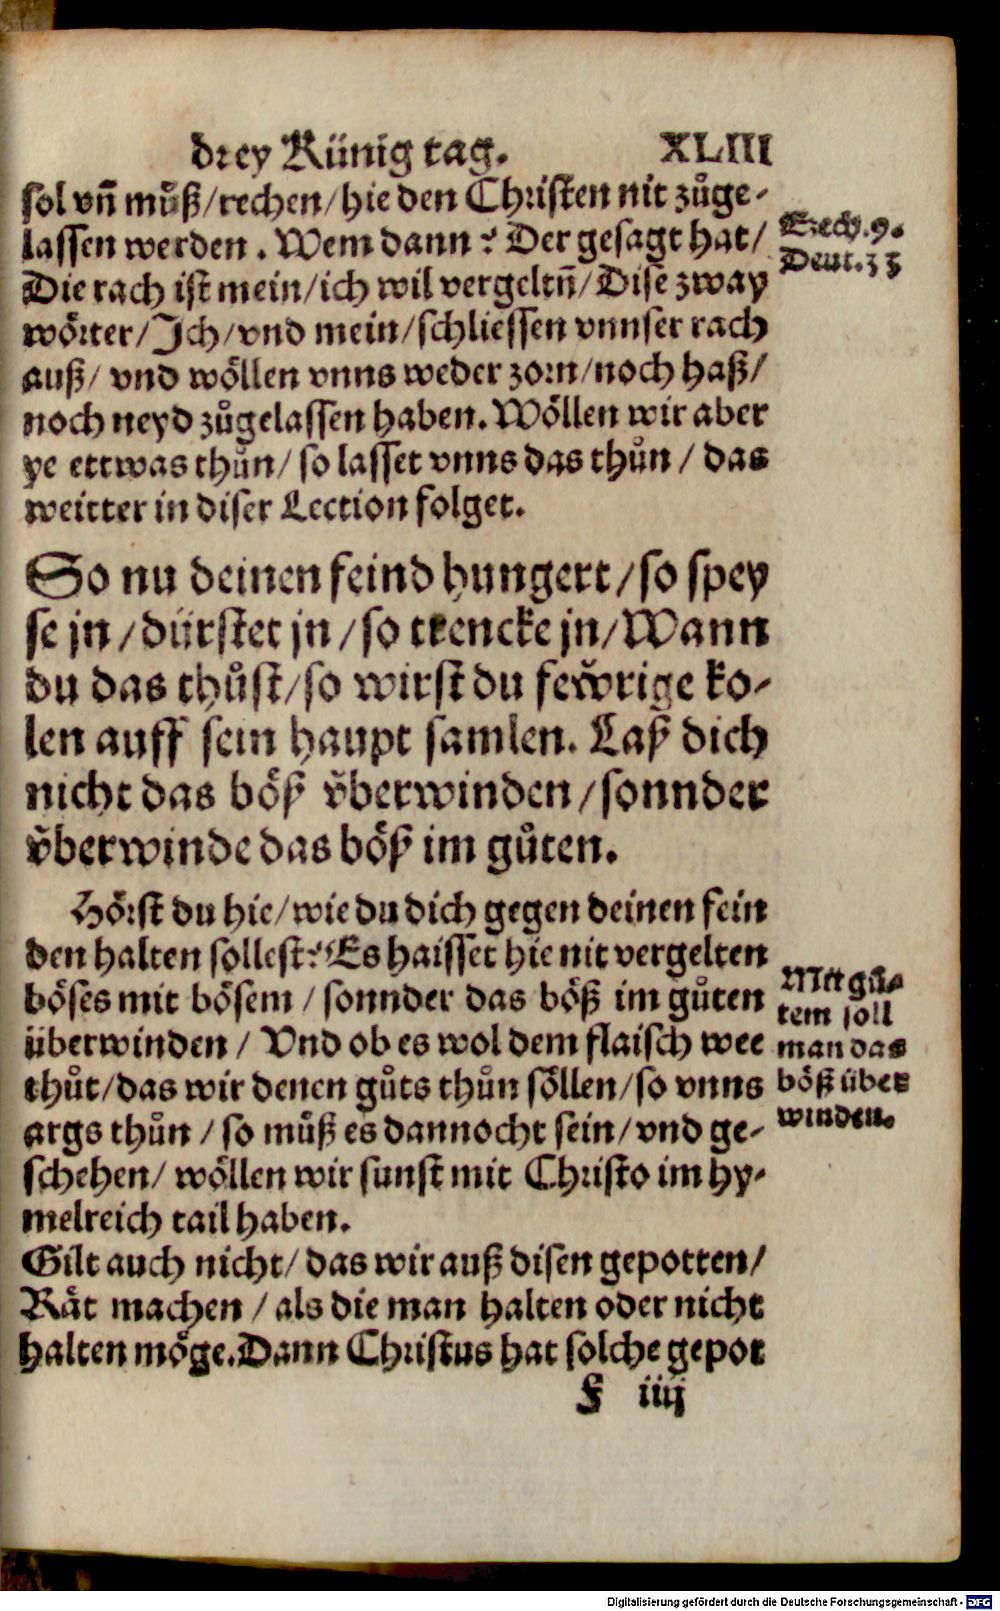 drey Künig tag. XLIII
sol vñ můß/rechen/hie den Christen nit zůge-
lassen werden. Wem dann? Der gesagt hat/
Ezech.9.
Deut.33
Die rach ist mein/ich wil vergeltñ/Dise zway
wörter/Ich/vnd mein/schliessen vnnser rach
auß/ vnd wöllen vnns weder zorn/noch haß/
noch neyd zůgelassen haben. Wöllen wir aber
ye ettwas thůn/ so lasset vnns das thůn/ das
weitter in diser Lection folget.
So nu deinen feind hungert/so spey
se jn/dürstet jn/so trencke jn/Wann
du das thůst/so wirst du feẅrige ko-
len auff sein haupt samlen. Laß dich
nicht das böß v̈berwinden/sonnder
v̈berwinde das böß im gůten.
Hörst du hie/wie du dich gegen deinen fein
den halten sollest? Es haisset hie nit vergelten
böses mit bösem/ sonnder das böß im gůten
überwinden/ Vnd ob es wol dem flaisch wee
thůt/das wir denen gůts thůn söllen/so vnns
args thůn/ so můß es dannocht sein/vnd ge-
schehen/ wöllen wir sunst mit Christo im hy-
melreich tail haben.
Mit gů-
tem soll
man das
böß über
winden.
Gilt auch nicht/ das wir auß disen gepotten/
Rät machen/ als die man halten oder nicht
halten möge. Dann Christus hat solche gepot
F iiij
Digitalisierung gefördert durch die Deutsche Forschungsgemeinschaft - DFG